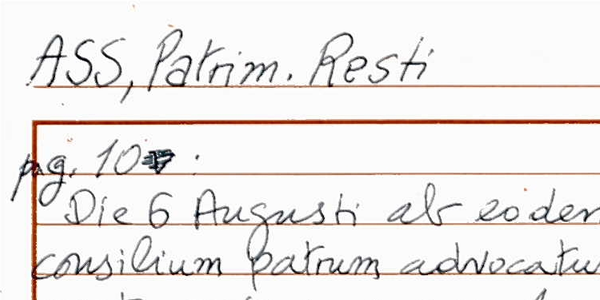 ASS, Patrim. Resti
pg. 10
Die 6 Augusti ab eoden
consilium patrum advocatu